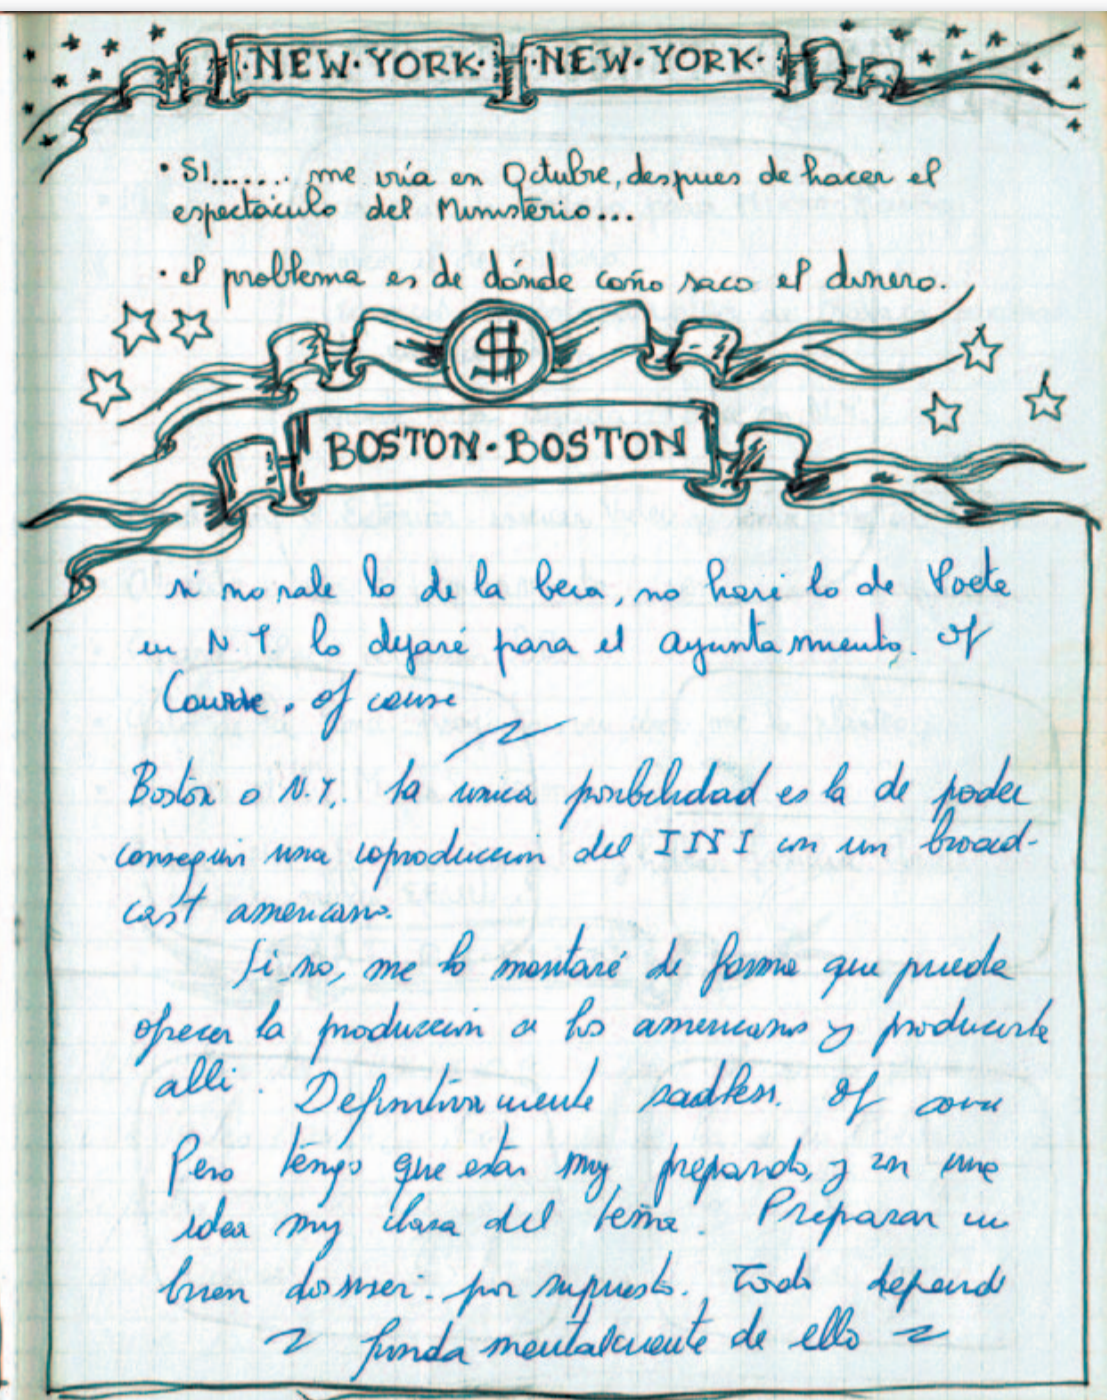 ·NEW·YORK· ·NEW·YORK·
· SI....... me iría en Octubre, despues de hacer el
espectáculo del Ministério...
· el problema es de dónde coño saco el dinero.
$
BOSTON·BOSTON
si no sale lo de la beca, no haré lo de Poeta
en N.Y. lo dejaré para el ayuntamiento. Of
Course. of course
Boston o N.Y. la unica posibilidad es la de poder
conseguir una coproduccion del INI con un broad-
cast americano.
Si no, me lo montaré de forma que pueda
ofrecer la produccion a los americanos y producirla
alli. Definitivamente. Of
Pero tengo que estar my preparado, y con una
idea my clara del tema. Preparar un
buen dossier. por supuesto. Todo depende
fundamentalmente de ello